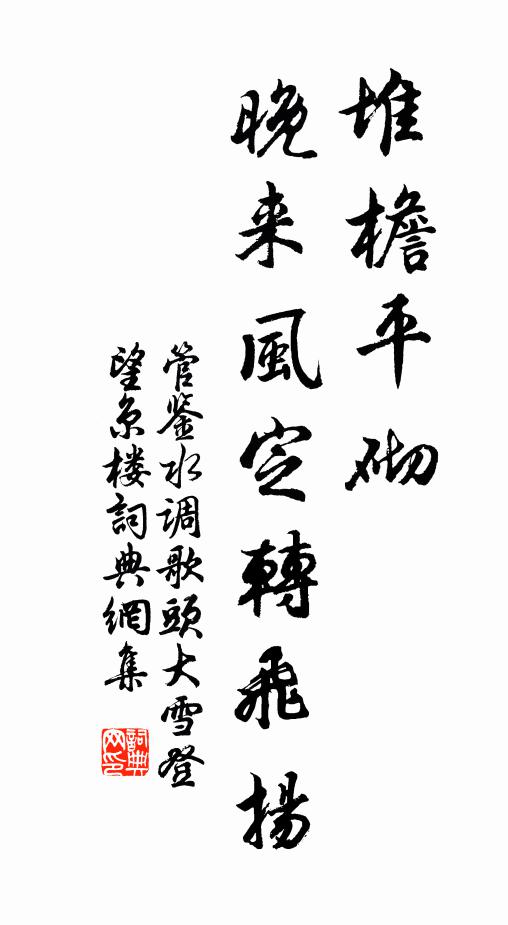 堆檐平砌
晚来風定轉飛揚
管鉴水调歌頭大雪登
望京楼詞典網集
詞典
网印